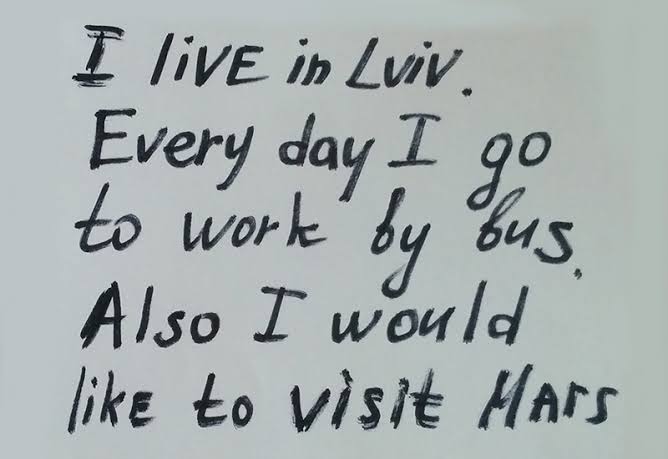 I liVE in Lviv.
Every day I go
to work by bus.
Also I would
like to visit MArs